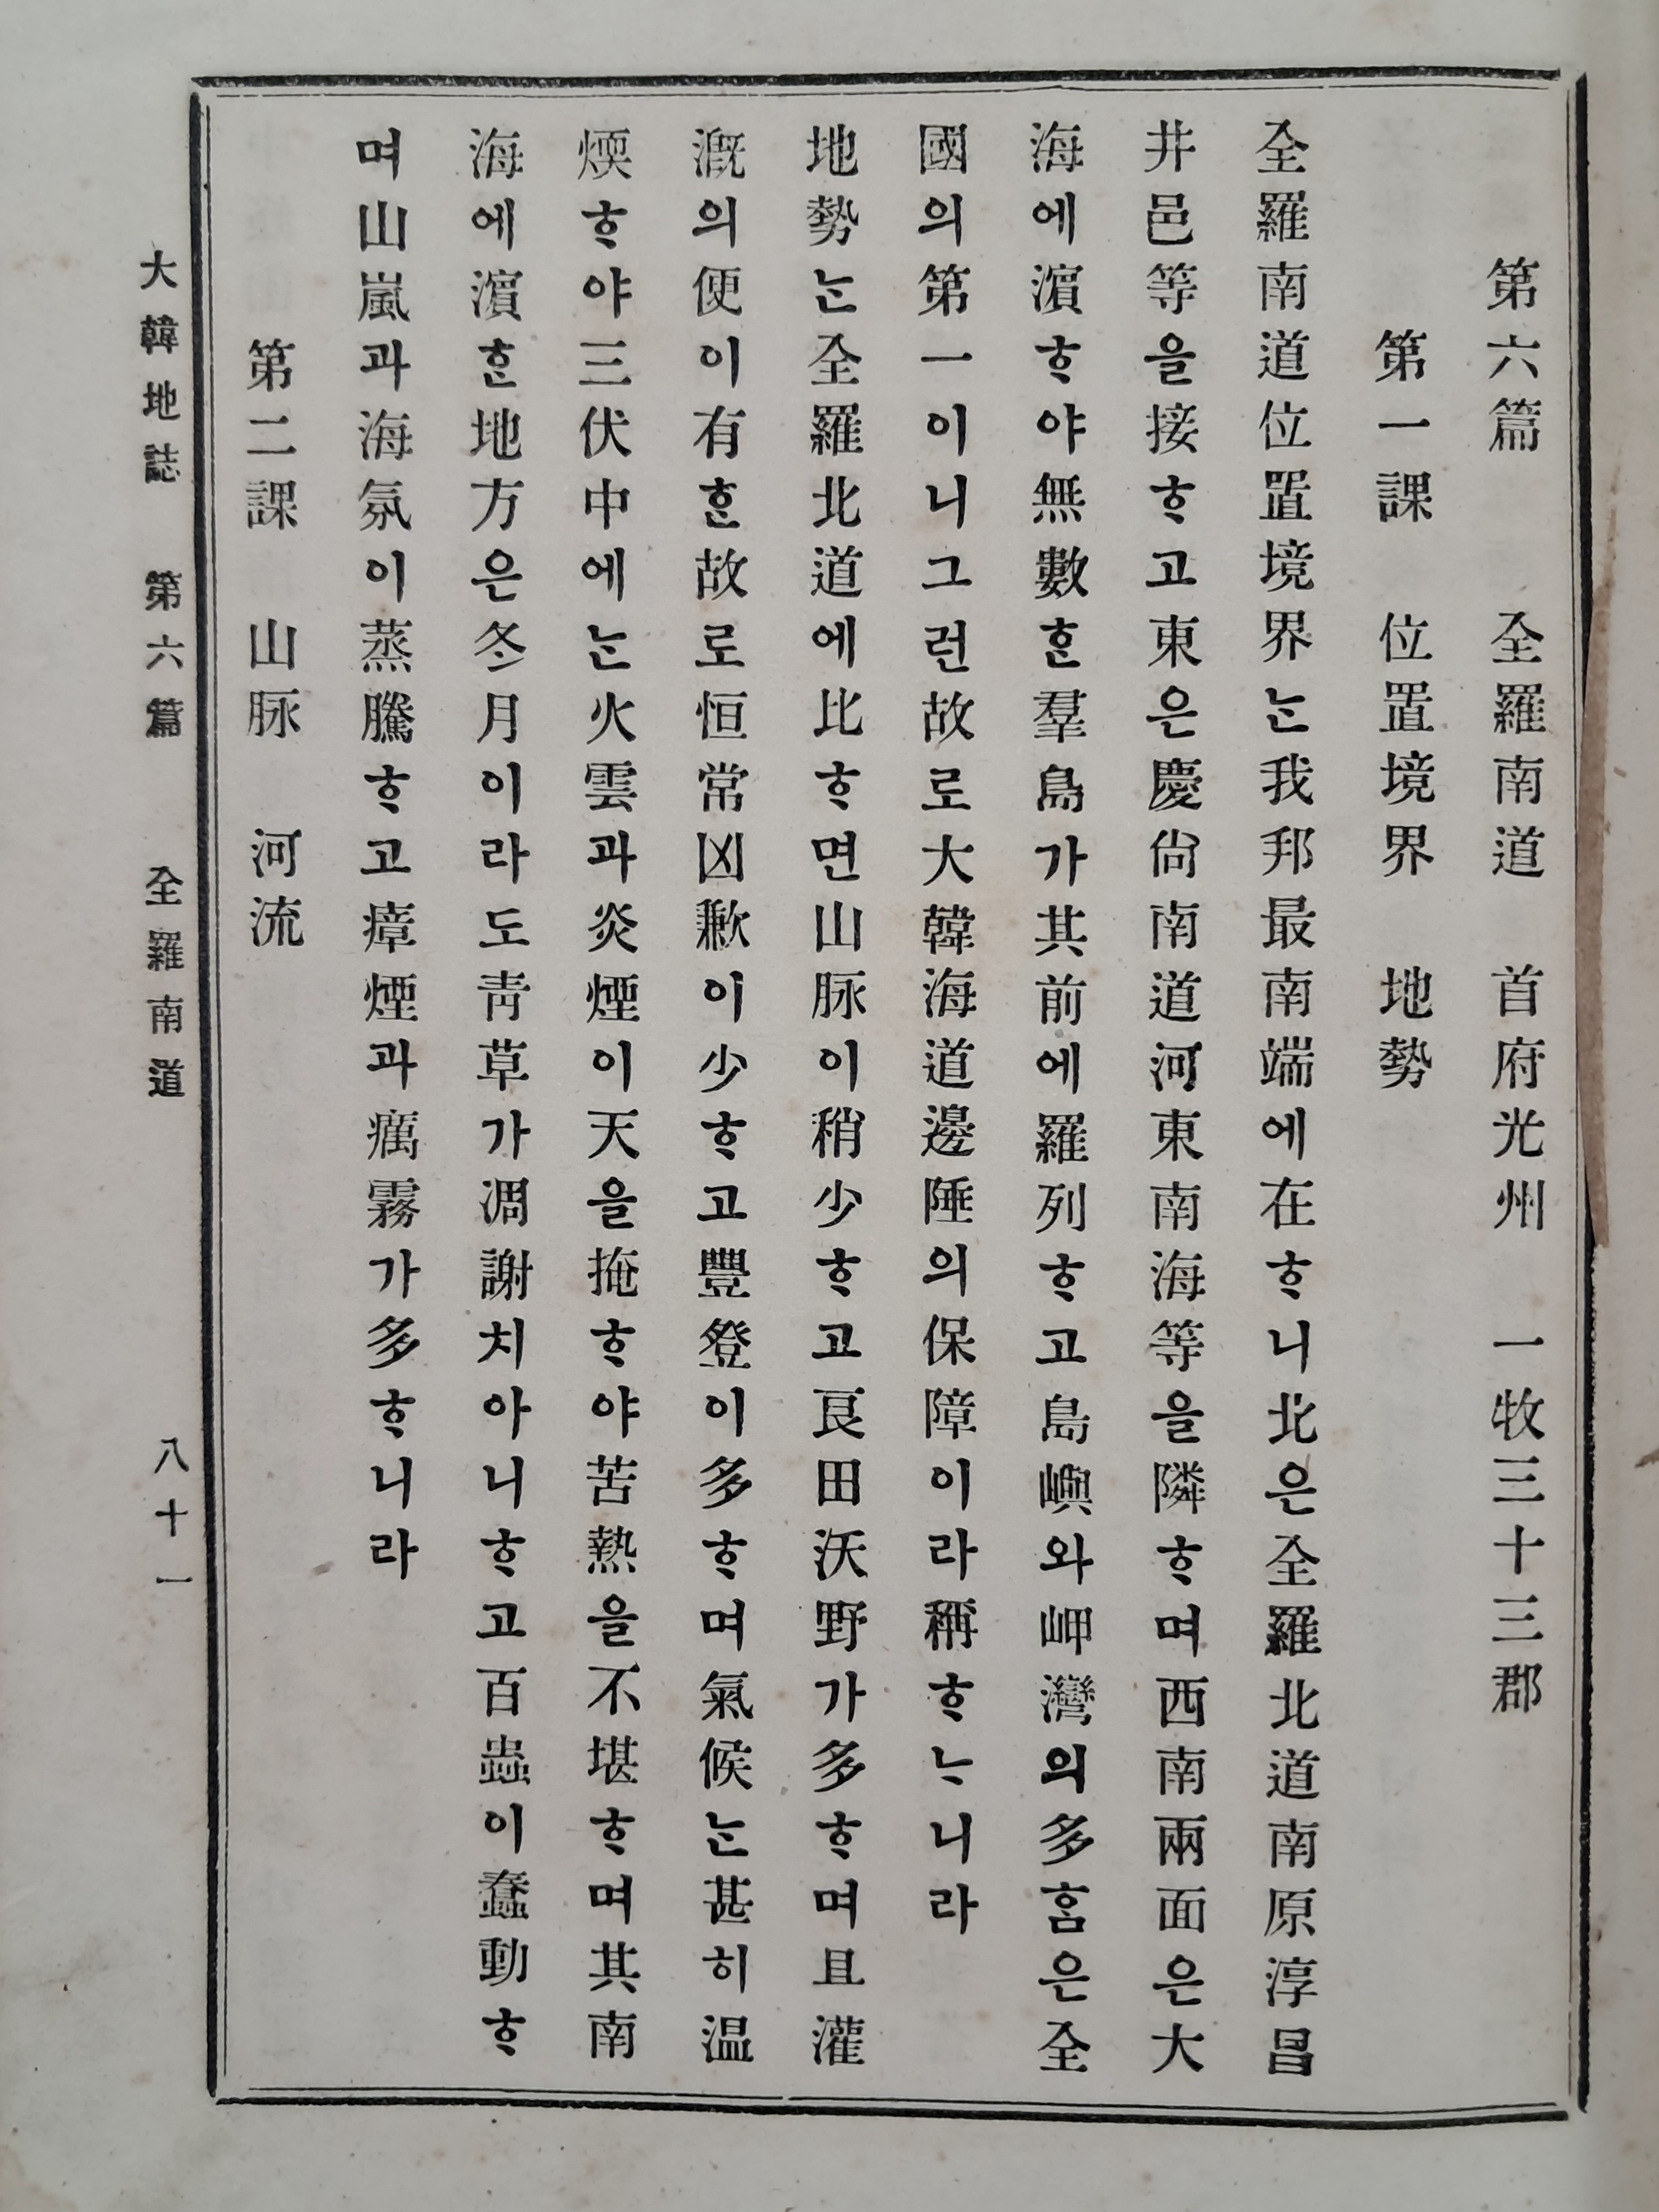 第六篇 全羅南道 首府光州 一牧三十三郡
第一課 位置境界 地勢
全羅南道位置境界는我邦最南端에在ᄒᆞ니北은全羅北道南原淳昌
井邑等을接ᄒᆞ고東은慶尙南道河東南海等을隣ᄒᆞ며西南兩面은大
海에濱ᄒᆞ야無數ᄒᆞᆫ羣島가其前에羅列ᄒᆞ고島嶼와岬灣의多홈은全
國의第一이니그런故로大韓海道邊陲의保障이라稱ᄒᆞᄂᆞ니라
地勢ᄂᆞᆫ全羅北道에比ᄒᆞ면山脉이稍少ᄒᆞ고良田沃野가多ᄒᆞ며且灌
漑의便이有ᄒᆞᆫ故로恒常凶歉이少ᄒᆞ고豐登이多ᄒᆞ며氣候ᄂᆞᆫ甚히温
煗ᄒᆞ야三伏中에ᄂᆞᆫ火雲과炎煙이天을掩ᄒᆞ야苦熱을不堪ᄒᆞ며其南
海에濱ᄒᆞᆫ地方은冬月이라도靑草가凋謝치아니ᄒᆞ고百蟲이蠢動ᄒᆞ
며山嵐과海氛이蒸騰ᄒᆞ고瘴煙과癘霧가多ᄒᆞ니라
第二課 山脉 河流
大韓地誌 第六篇 全羅南道 八十一